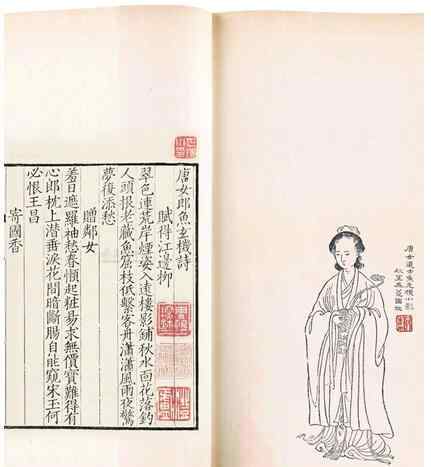 唐女道士魚玄機小影
唐女郎魚玄機詩
賦得江邊柳
翠色連荒岸煙姿入遠樓影鋪秋水面花落釣
人頭根老藏魚窟枝低繫客舟瀟瀟風雨夜驚
夢復添愁
贈鄰女
羞日遮羅袖愁春懶起粧易求無價寶難得有
心郎枕上潜垂淚花間暗斷腸自能窺宋玉何
必恨王昌
寄國香